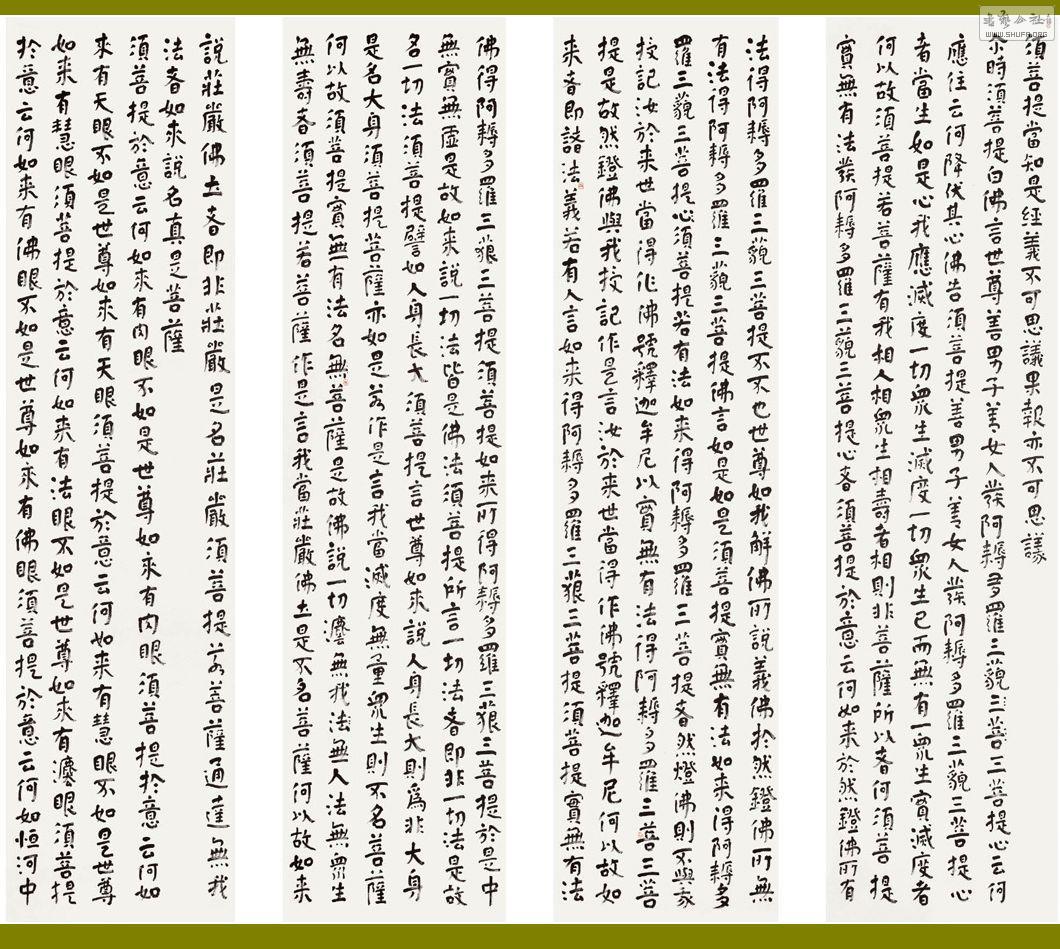 須菩提當知是經義不可思議果報亦不可思議
尒時須菩提白佛言世尊善男子善女人發阿耨多羅三藐三菩三菩提心云何
應住云何降伏其心佛告須菩提善男子善女人發阿耨多羅三藐三菩提心
者當生如是心我應滅度一切眾生滅度一切眾生已而無有一眾生實滅度者
何以故須菩提若菩薩有我相人相眾生相壽者相則非菩薩所以者何須菩提
實無有法發阿耨多羅三藐三菩提心者須菩提於意云何如來於然鐙佛所有
法得阿耨多羅三藐三菩提不不也世尊如我解佛所說義佛於然鐙佛所無
有法得阿耨多羅三藐三菩提佛言如是如是須菩提實無有法如來得阿耨多
羅三藐三菩提心須菩提若有法如來得阿耨多羅三菩提者然燈佛則不與我
授記汝於來世當得作佛號釋迦牟尼以實無有法得阿耨多羅三菩三菩
提是故然鐙佛與我授記作是言汝於來世當得作佛號釋迦牟尼何以故如
來者即諸法義若有人言如來得阿耨多羅三藐三菩提須菩提實無有法
佛得阿耨多羅三藐三菩提須菩提如來所得阿耨多羅三藐三菩提於是中
無實無虛是故如來說一切法皆是佛法須菩提所言一切法者即非一切法是故
名一切法須菩提譬如人身長大須菩提言世尊如來說人身長大則為非大身
是名大身須菩提菩薩亦如是若作是言我當滅度無量眾生則不名菩薩
何以故須菩提實無有法名無菩薩是故佛說一切灋無我法無人法無眾生
無壽者須菩提若菩薩作是言我當莊嚴佛土是不名菩薩何以故如來
說莊嚴佛土者即非莊嚴是名莊嚴須菩提若菩薩通達無我
法者如來說名真是菩薩
須菩提於意云何如來有肉眼不如是世尊如來有肉眼須菩提於意云何如
來有天眼不如是世尊如來有天眼須菩提於意云何如來有慧眼不如是世尊
如來有慧眼須菩提於意云何如來有法眼不如是世尊如來有灋眼須菩提
於意云何如來有佛眼不如是世尊如來有佛眼須菩提於意云何如恒河中
WWW.SHUFA.ORG